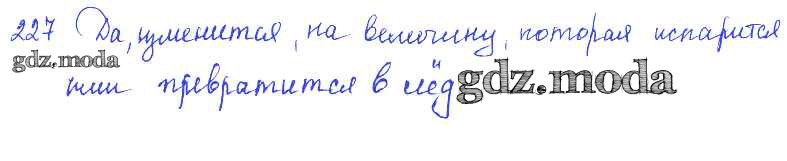 227 Да, изменится, на величину, которая испарится
gdz.moda
или превратится в лёд gdz.moda